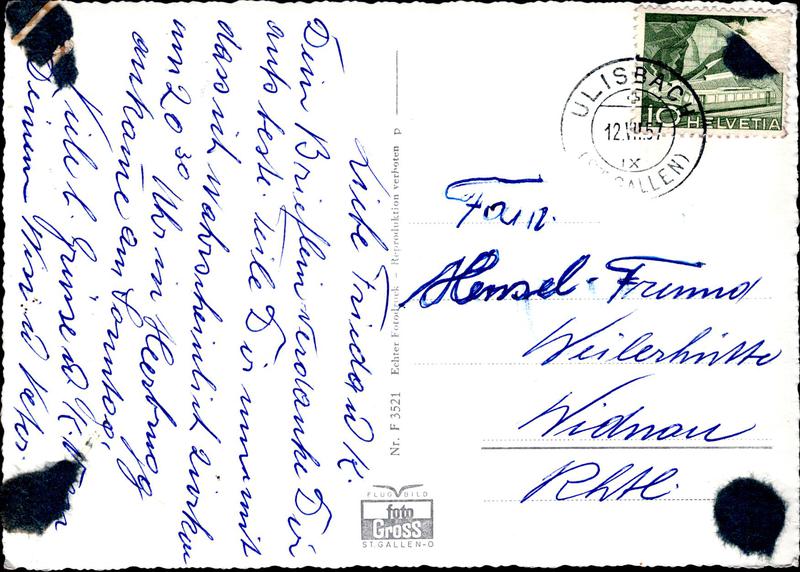 Liebe Frieda u K.
Dein Brieflein verdanke Dir
aufs beste. teile Dir nun mit
dass ich wahrscheinlich zirka
um 20 30 Uhr in Heerbrugg
ankome am Sonntag.
Viele l. Grüsse u K.
Deinem u Vater.
Nr. F 3521 Echter Fotodruck – Reproduktion verboten p
FLUG BILD
foto
GROSS
ST. GALLEN-O
ULISBACH
12.VII.57
IX
(ST. GALLEN)
10 HELVETIA
Fam.
Hensel-Freund
Weilerhütte
Widnau
Rhtl.